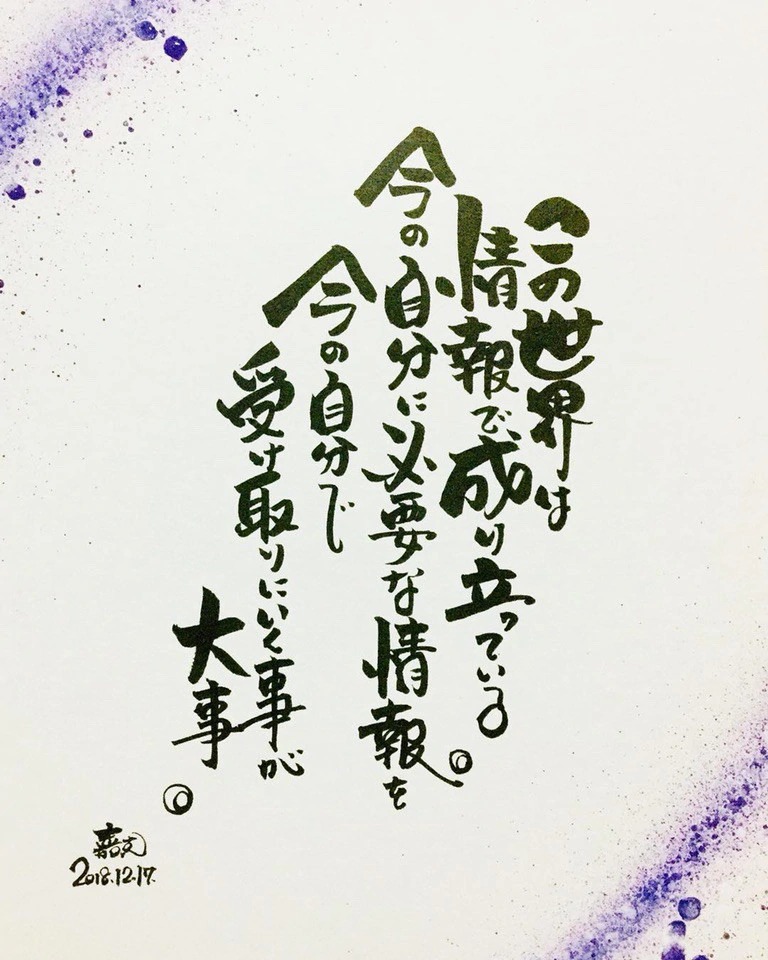 この世界は
情報で成り立っている。
今の自分に必要な情報を
今の自分で
受け取りにいく事が
大事。
2018.12.17.